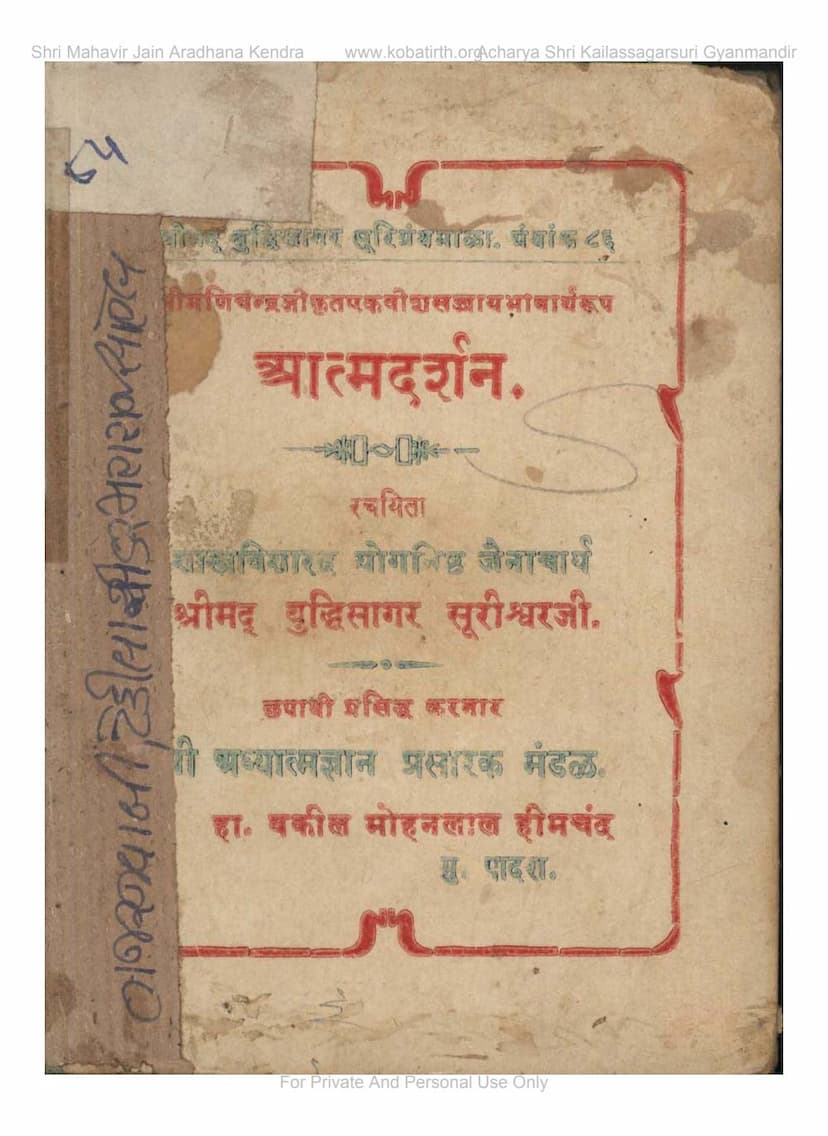 Shri Mahavir Jain Aradhana Kendra www.kobatirth.org Acharya Shri Kailassagarsuri Gyanmandir
श्रीमद् बुद्धिसागर सूरिग्रंथमाळा. ग्रंथांक ८६
आत्मदर्शन.
रचयिता
शास्त्रविशारद योगनिष्ठ जैनाचार्य
श्रीमद् बुद्धिसागर सूरीश्वरजी.
छपावी प्रसिद्ध करनार
श्री अध्यात्मज्ञान प्रसारक मंडळ.
हा. वकील मोहनलाल हीमचंद
मु. पादरा.
For Private And Personal Use Only